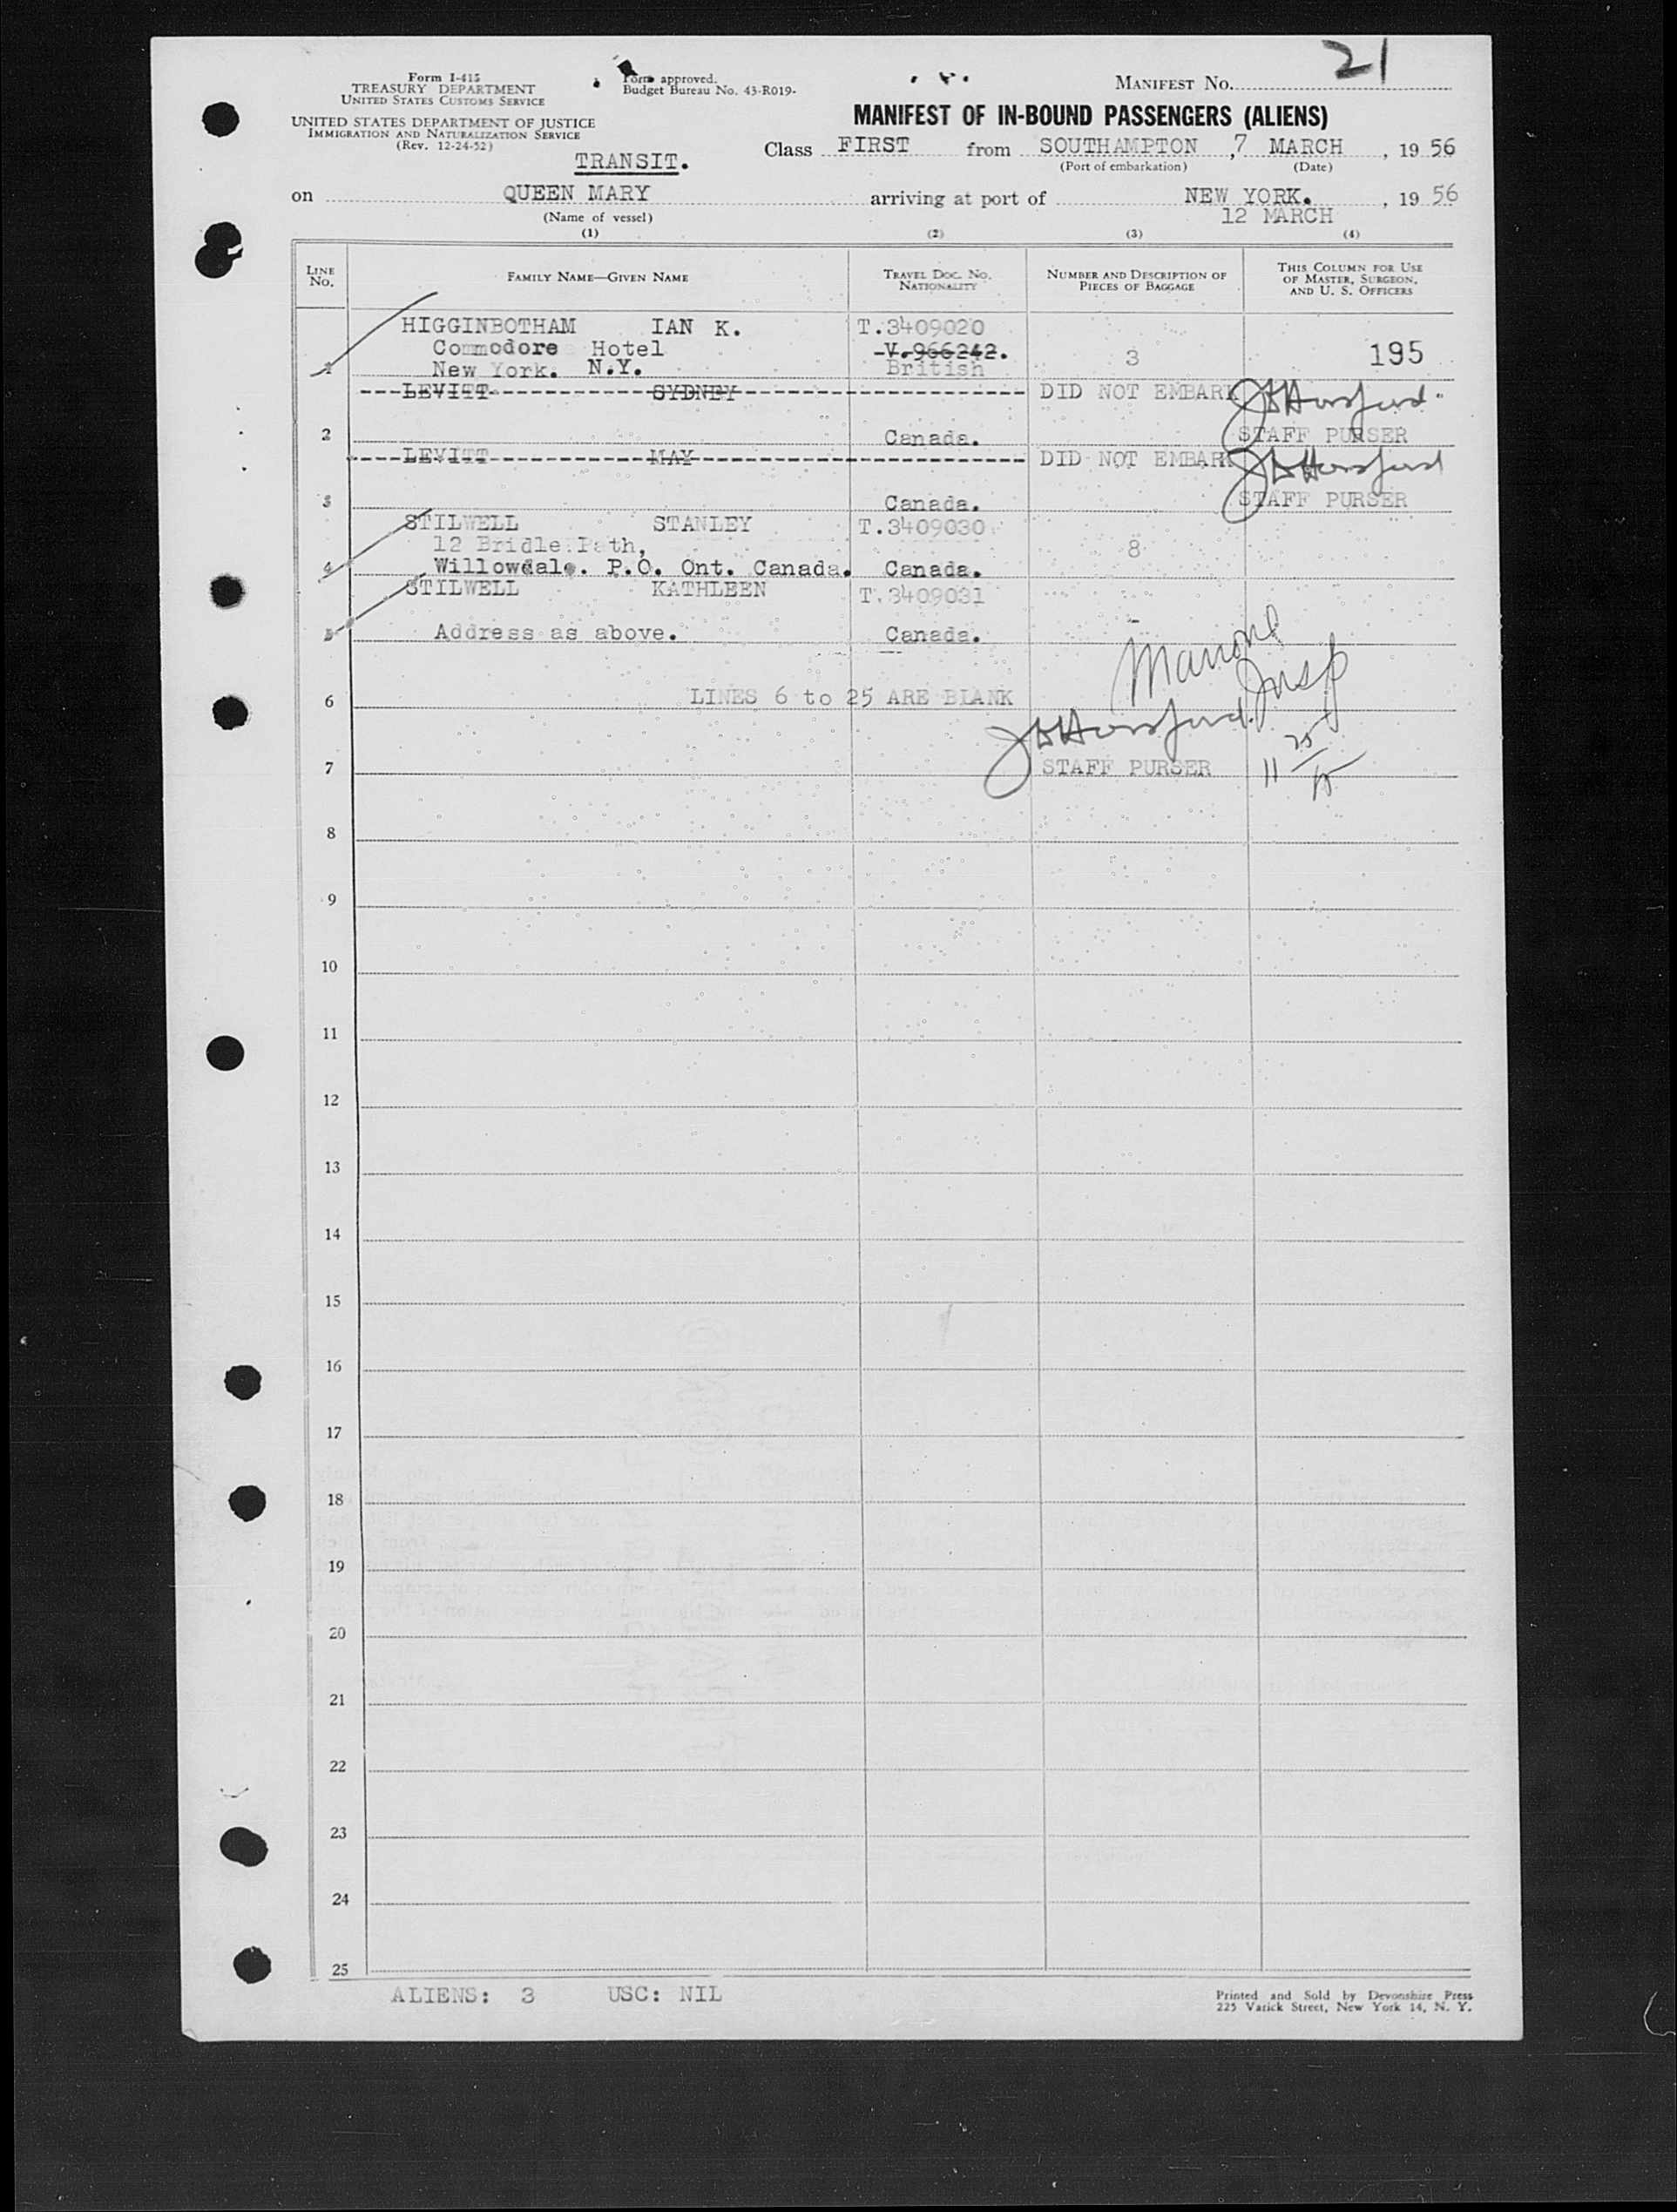 21
Form I-415
TREASURY DEPARTMENT
UNITED STATES CUSTOMS SERVICE
UNITED STATES DEPARTMENT OF JUSTICE
IMMIGRATION AND NATURALIZATION SERVICE
(Rev. 12-24-52)
Form approved.
Budget Bureau No. 43-R019-
MANIFEST NO.
MANIFEST OF IN-BOUND PASSENGERS (ALIENS)
TRANSIT.
Class FIRST from SOUTHAMPTON, 7 MARCH, 19 56
(Port of embarkation) (Date)
on QUEEN MARY arriving at port of NEW YORK., 19 56
(Name of vessel) 12 MARCH
(1) (2) (3) (4)
LINE NO. FAMILY NAME—GIVEN NAME TRAVEL DOC. NO. NATIONALITY NUMBER AND DESCRIPTION OF PIECES OF BAGGAGE THIS COLUMN FOR USE OF MASTER, SURGEON, AND U. S. OFFICERS
HIGGINBOTHAM IAN K. T.3409020
Commodore Hotel -V.966242. 3 195
1 New York. N.Y. British
LEVITT SYDNEY DID NOT EMBARK
2 Canada. STAFF PURSER
LEVITT MAY DID NOT EMBARK
3 Canada. STAFF PURSER
STILWELL STANLEY T.3409030
12 Bridle Path, 8
4 Willowdale. P.O. Ont. Canada. Canada.
STILWELL KATHLEEN T.3409031
5 Address as above. Canada.
Insp
6 LINES 6 to 25 ARE BLANK
7 STAFF PURSER
8
9
10
11
12
13
14
15
16
17
18
19
20
21
22
23
24
25
ALIENS: 3 USC: NIL
Printed and Sold by Devonshire Press
225 Varick Street, New York 14, N. Y.